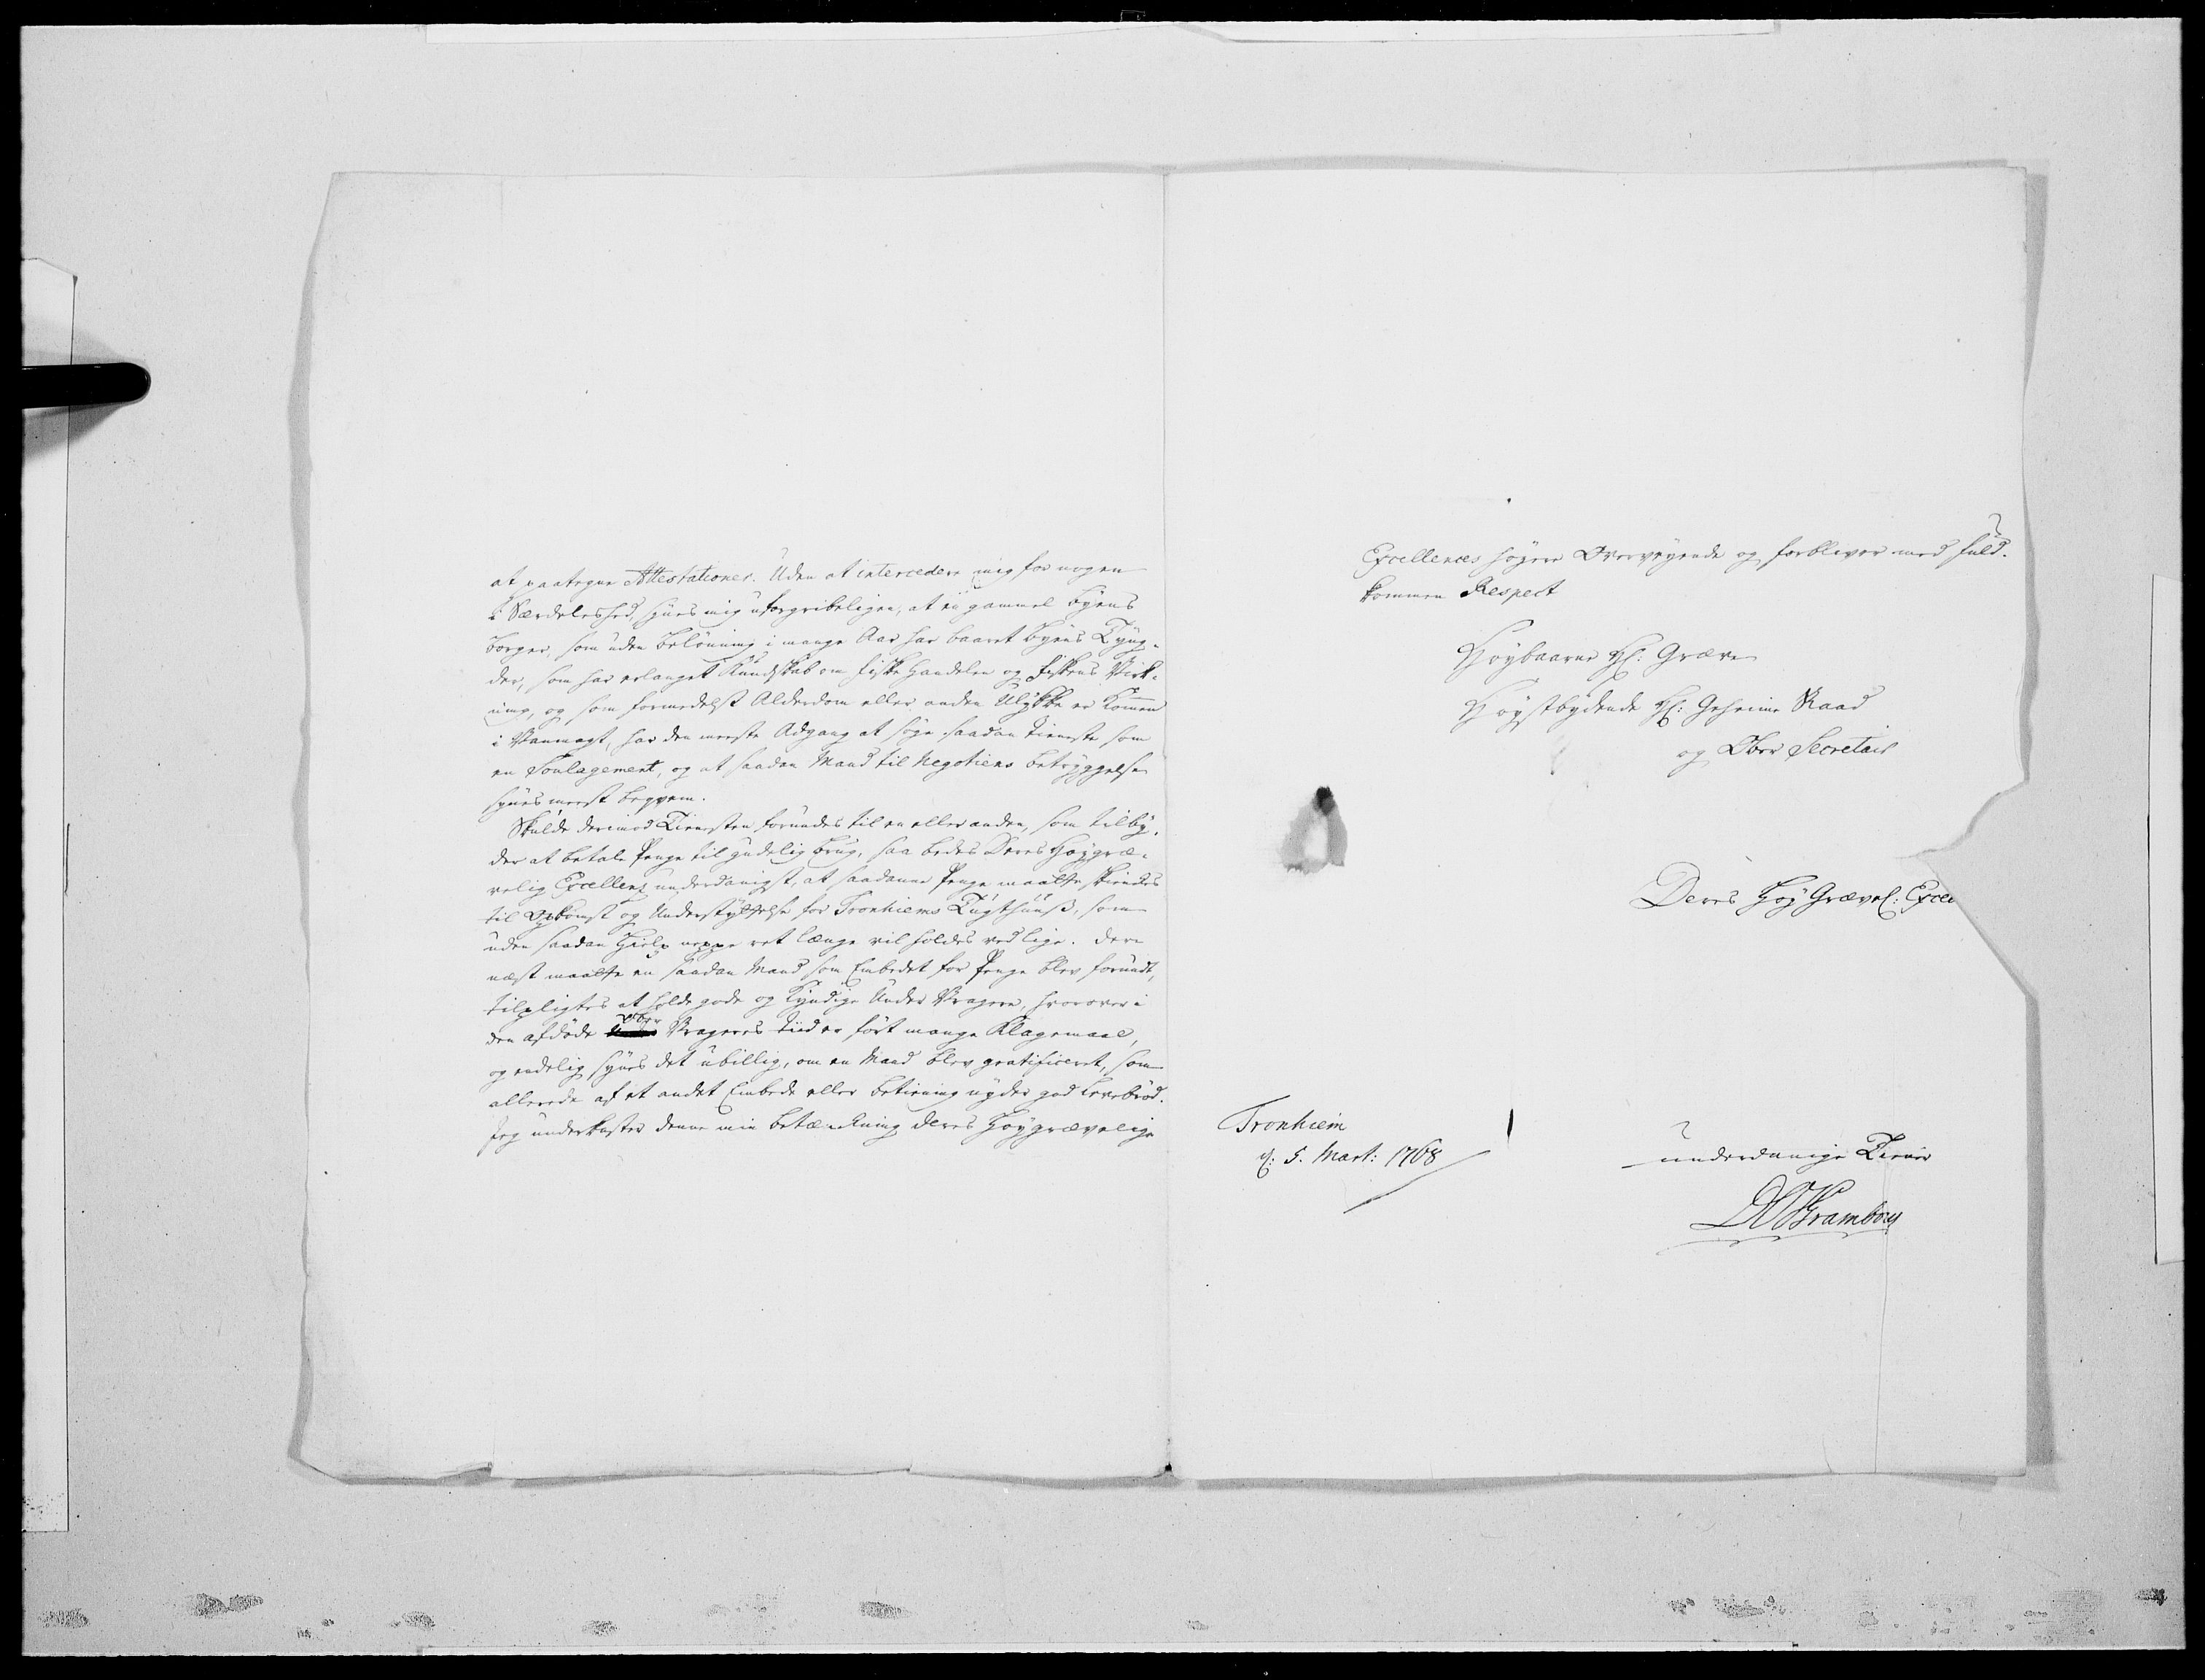 at paategne Attestationer. Uden at intercedere mig for nogen
i Særdeleshed, synes mig uforgribeligen, at en gammel Byens
Borger, som uden Belönning i mange Aar har baaret Byens Tyng-
der, som har erlanget Kundskab om Fiske Handelen og Fiskens Virk-
ning, og som formedelst Alderdom eller anden Ulykke er kommen
i Vanmagt, har den meeste Adgang at söge saadan Tieneste som
en Soulagement, og at saadan Mand til Negotiens Betryggelse
synes meest beqvem.
Skulde derimod Tienesten forundes til en eller anden, som tilby-
der at betale Penge til gudelig Brug, saa bedes Deres Höygræ-
velig Excellenz underdanigst, at saadanne Penge maatte skiendes
til Opkomst og Understyttelse for Tronhiems Tugthuus, som
uden saadan Hielp neppe ret længe vil holdes ved lige. Der-
næst maatte en saadan Mand som Embedet for Penge blev forundt,
tilpligtes at holde gode og kyndige Under Vragere, hvorover i
den afdöde Ober Vrageres Tiid er fört mange Klagemaal,
og endelig synes det ubillig, om en Mand blev gratificeret, som
allerede af et andet Embede eller Betiening nyder god Levebröd.
Jeg underkaster denne min Betænkning Deres Höygrævelige
Excellences höyere Overveyende og forbliver med fuld-
kommen Respect
Höybaarne Hr: Græve
Höystbydende Hr: Geheime Raad
og Ober Secretair
Deres Höy Grævel: Excel
Tronhiem
d: 5. Mart: 1768
underdanige Tiener